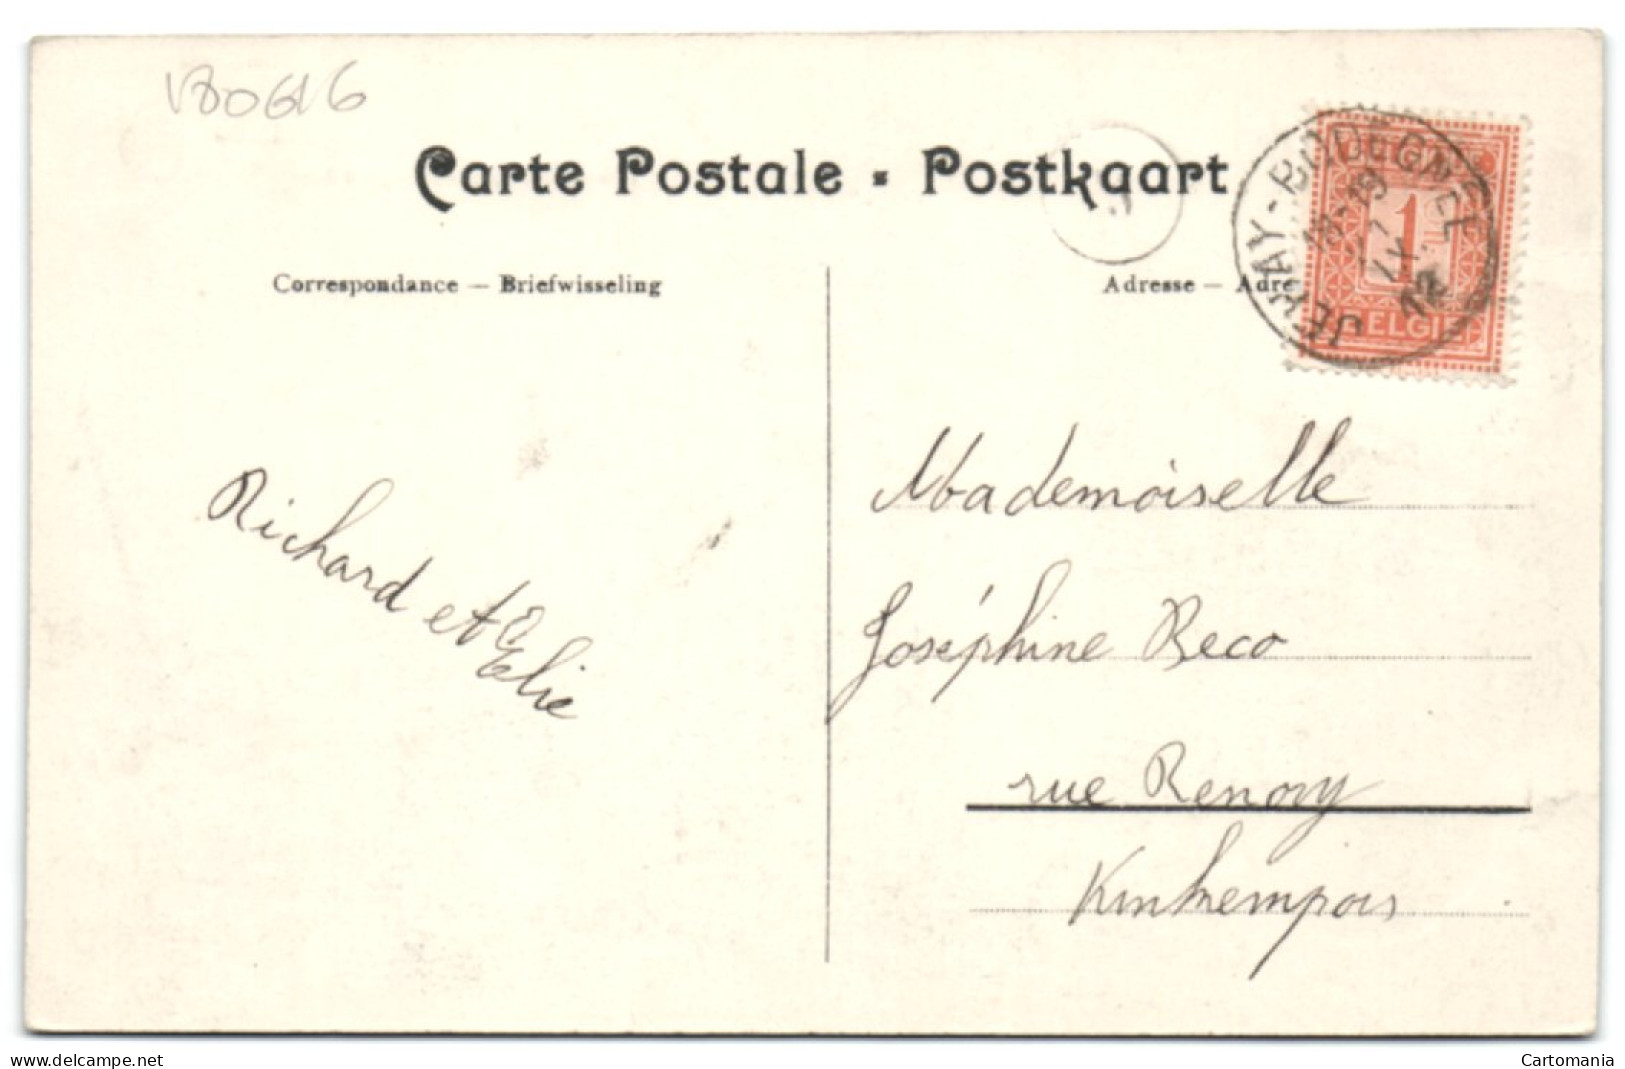 180616
Carte Postale - Postkaart
Correspondance — Briefwisseling
Adresse — Adre
JEHAY-BODEGNÉE
18-19
IX
12
1
BELGI
Mademoiselle
Joséphine Reco
rue Renory
Kinkempois
Richard et Elie
delcampe.net
Cartomania